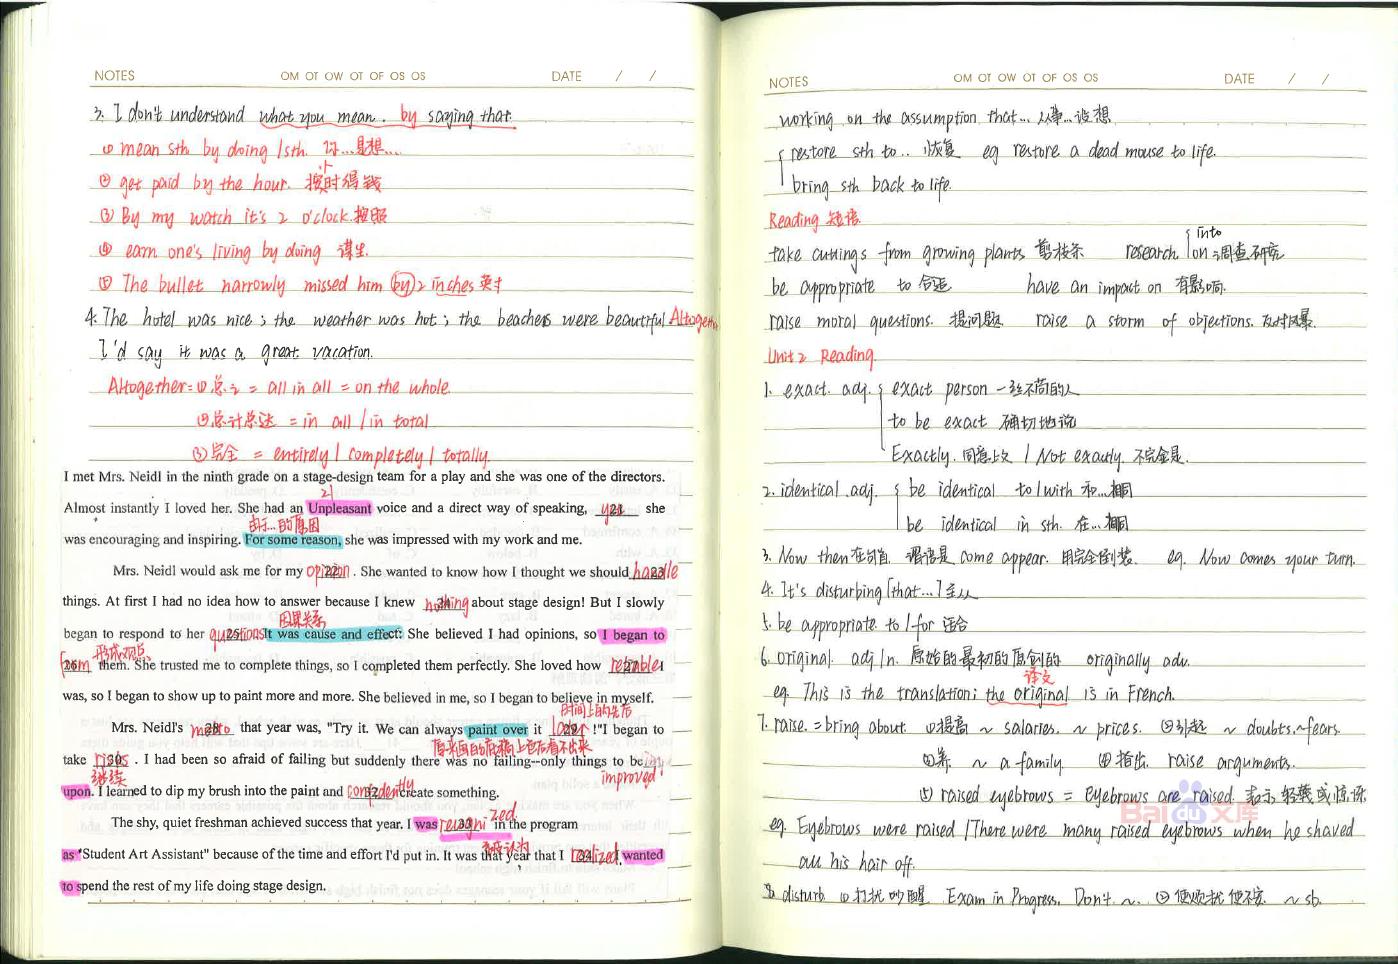 NOTES OM OT OW OT OF OS OS DATE / /
3. I don't understand what you mean. by saying that.
① mean sth by doing /sth. 以...是想...
② get paid by the hour. 按小时得钱
③ By my watch it's 2 o'clock.按照
④ earn one's living by doing 谋生.
⑤ The bullet narrowly missed him by 2 inches 英寸
4. The hotel was nice ; the weather was hot ; the beaches were beautiful. Altogether
I'd say it was a great vacation.
Altogether: ①总之 = all in all = on the whole.
②总计总达 = in all / in total
③完全 = entirely / completely / totally.
I met Mrs. Neidl in the ninth grade on a stage-design team for a play and she was one of the directors.
21
Almost instantly I loved her. She had an Unpleasant voice and a direct way of speaking, 21 yet she
由于...的原因
was encouraging and inspiring. For some reason, she was impressed with my work and me.
Mrs. Neidl would ask me for my 22 opinion. She wanted to know how I thought we should 23 handle
things. At first I had no idea how to answer because I knew 24 nothing about stage design! But I slowly
因果关系
began to respond to her 25 questions It was cause and effect: She believed I had opinions, so I began to
形成观点
26 form them. She trusted me to complete things, so I completed them perfectly. She loved how 27 reliable I
was, so I began to show up to paint more and more. She believed in me, so I began to believe in myself.
时间上的先后
Mrs. Neidl's 28 motto that year was, "Try it. We can always paint over it 29 later !"I began to
take 30 risks . I had been so afraid of failing but suddenly there was no failing--only things to be
继续 improved
upon. I learned to dip my brush into the paint and 32 confidently create something.
The shy, quiet freshman achieved success that year. I was 33 recognized in the program
as "Student Art Assistant" because of the time and effort I'd put in. It was that year that I 34 realized wanted
to spend the rest of my life doing stage design.
NOTES OM OT OW OT OF OS OS DATE / /
working on the assumption that... 从事...设想
restore sth to .. 恢复 eg restore a dead mouse to life.
bring sth back to life.
Reading 短语.
into
take cuttings from growing plants 剪枝条 research on 调查研究
be appropriate to 合适 have an impact on 有影响.
raise moral questions. 提问题 raise a storm of objections. 反对风暴.
Unit 2 Reading.
1. exact. adj. exact person 一丝不苟的人
to be exact 确切地说
Exactly. 同意上文 / Not exactly. 不完全是.
2. identical .adj. be identical to / with 和...相同
be identical in sth. 在...相同
3. Now then 在句首. 谓语是 come appear. 用完全倒装. eg. Now comes your turn.
4. It's disturbing [that...] 主从
5. be appropriate to / for 适合
6. original. adj / n. 原始的最初的原创的 originally adv.
译文
eg. This is the translation; the original is in French.
7. raise. = bring about. ①提高 ~ salaries. ~ prices. ②引起 ~ doubts.~fears.
③养. ~ a family. ④ 指出. raise arguments.
⑤ raised eyebrows = Eyebrows are raised. 表示轻蔑或惊讶.
eg. Eyebrows were raised / There were many raised eyebrows when he shaved
all his hair off.
8. disturb. ①打扰吵醒. Exam in Progress. Don't ~. ②使烦扰使不安. ~ sb.
Bai 文库